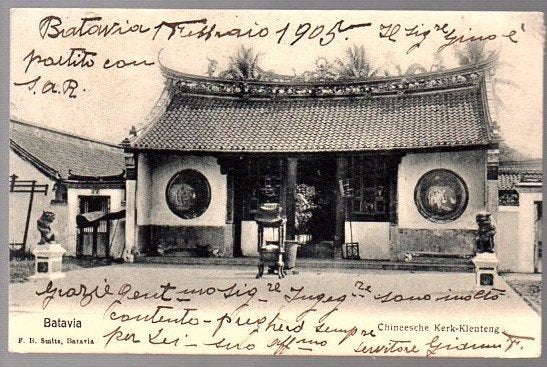 Batavia 1 Febbraio 1905. Il Sigre Gino è
partito con
S.A.R.
Grazie Gent-mo Sigre Ingegre sono molto
contento - pregherò sempre
per Lei - suo affmo servitore Gianni F.
Batavia
Chineesche Kerk-Klenteng
F. B. Smits, Batavia